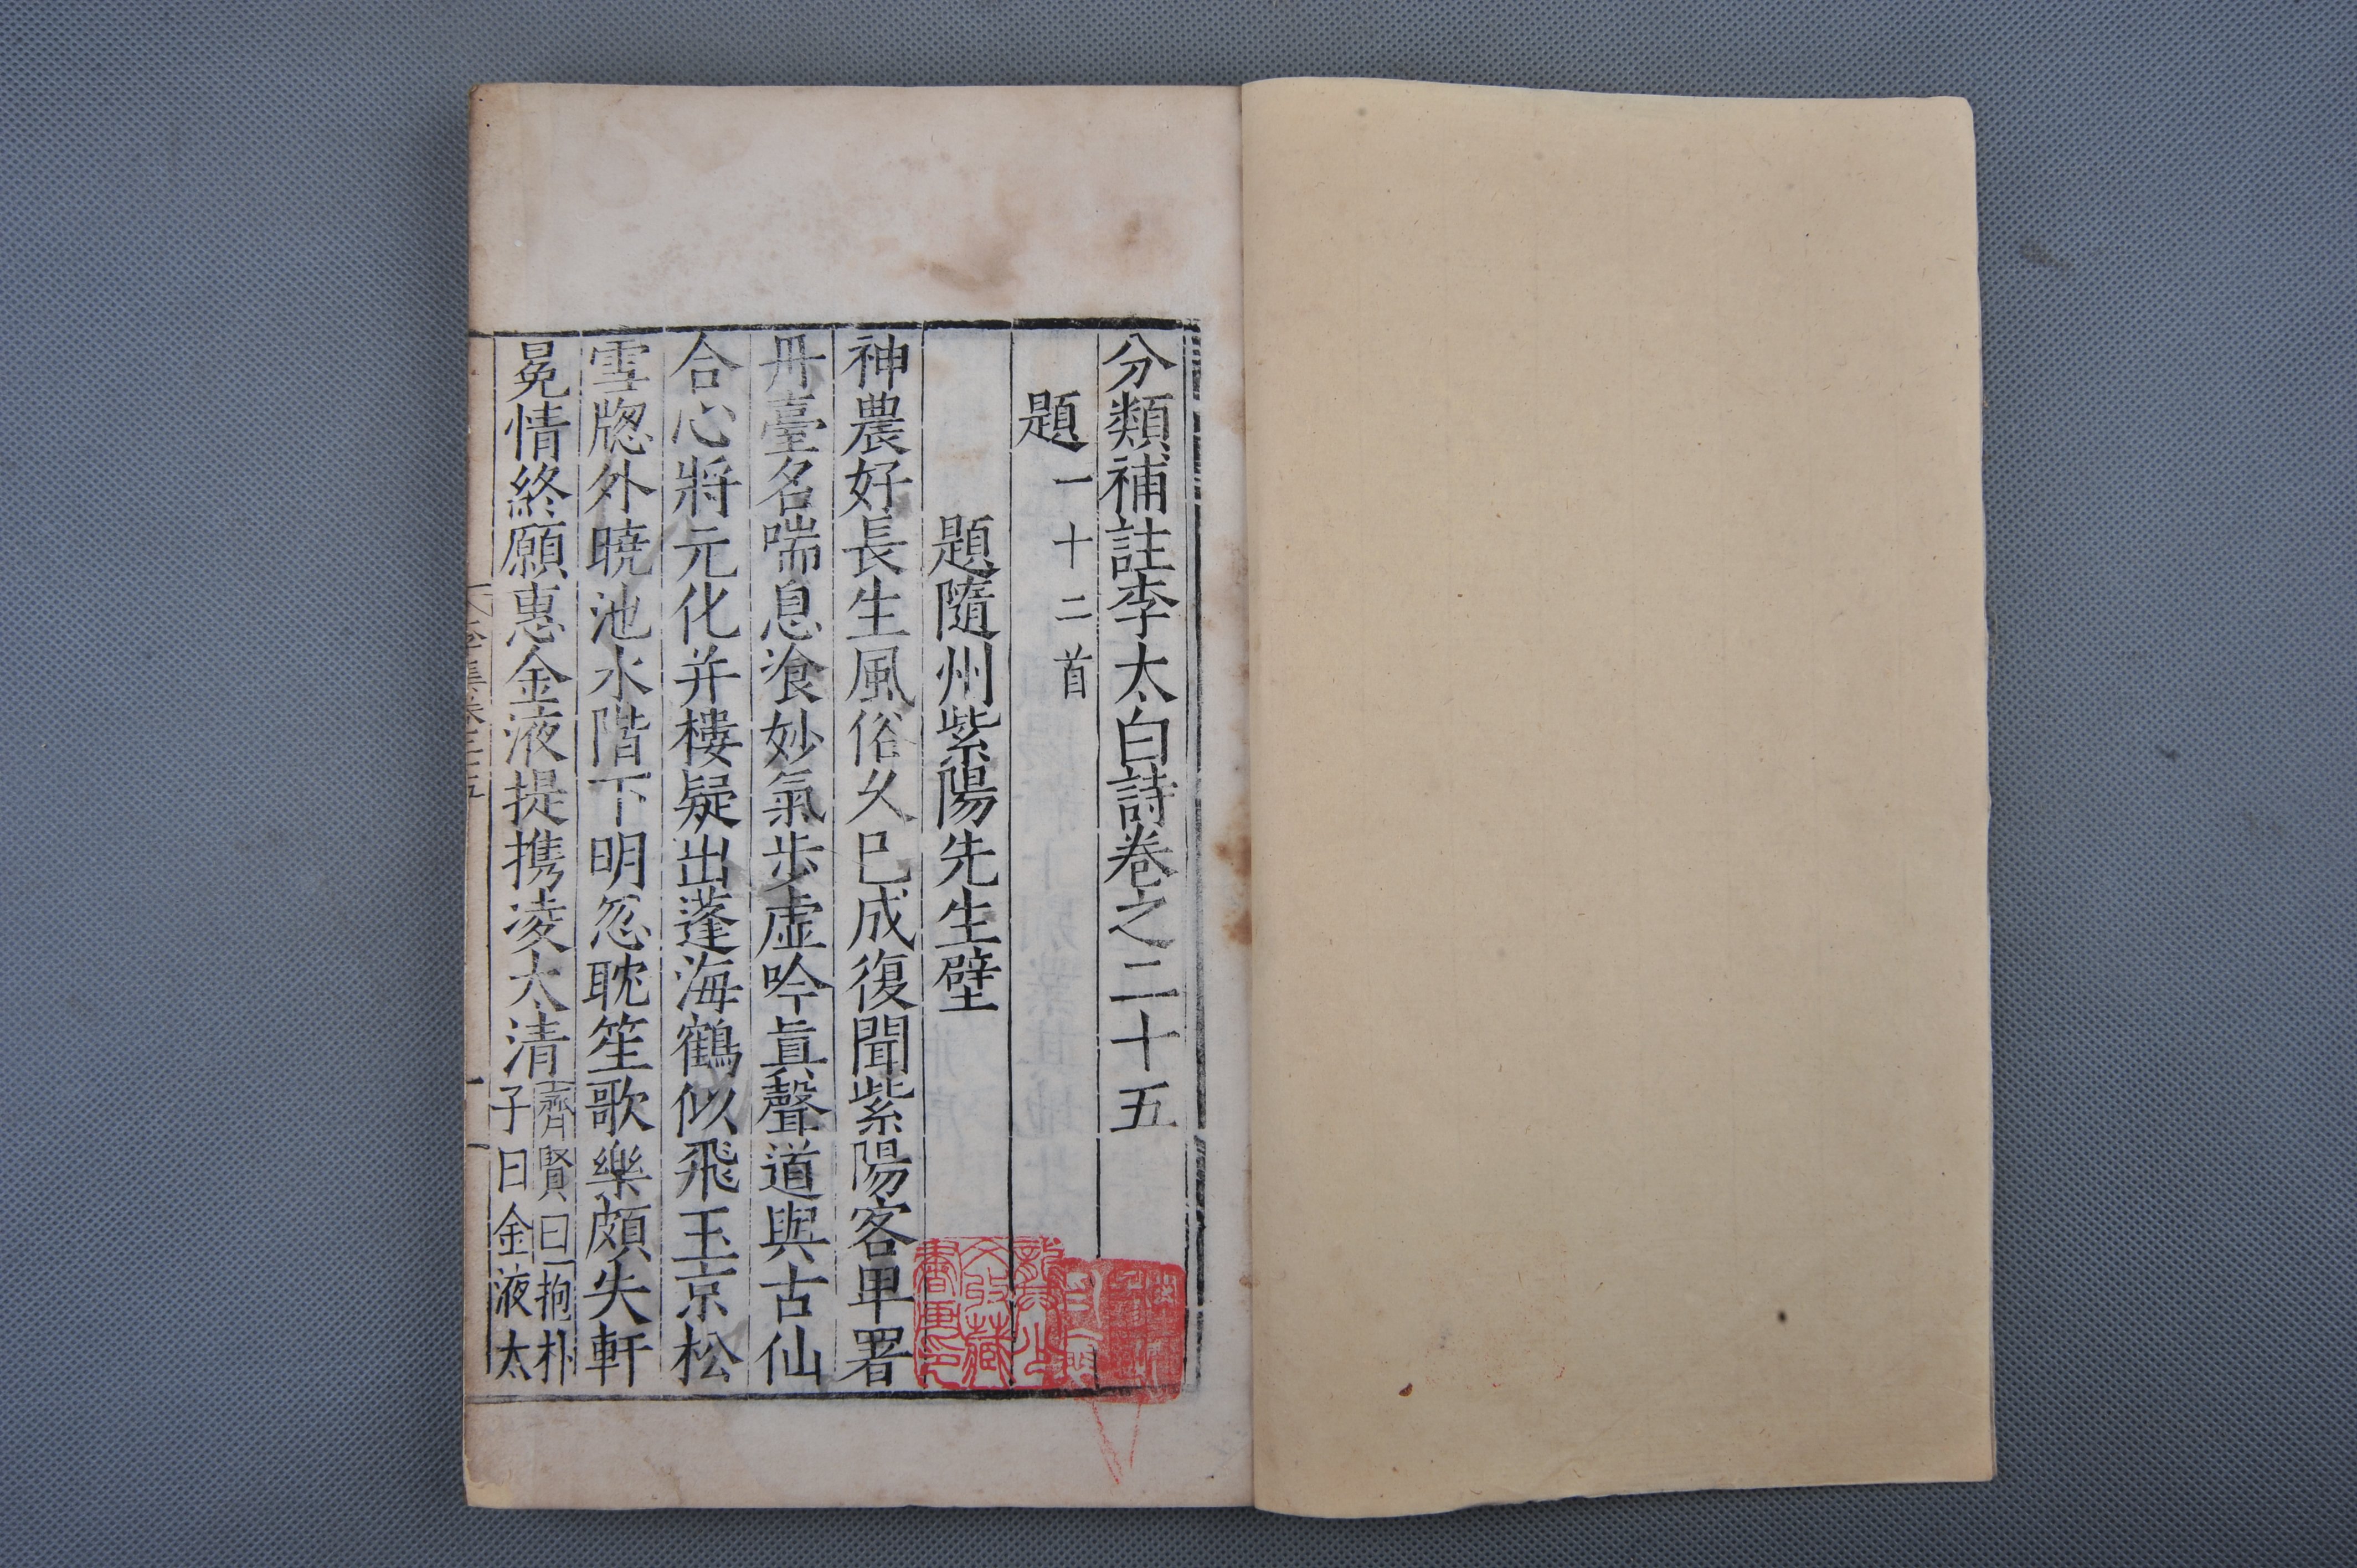 分類補註李太白詩卷之二十五
題一十二首
題隨州紫陽先生壁
神農好長生風俗久已成復聞紫陽客早署
丹臺名喘息飡妙氣步虛吟眞聲道與古仙
合心將元化并樓疑出蓬海鶴似飛玉京松
雪牎外曉池水階下明忽耽笙歌樂頗失軒
冕情終願惠金液提携凌太清
齊賢曰抱朴
子曰金液太